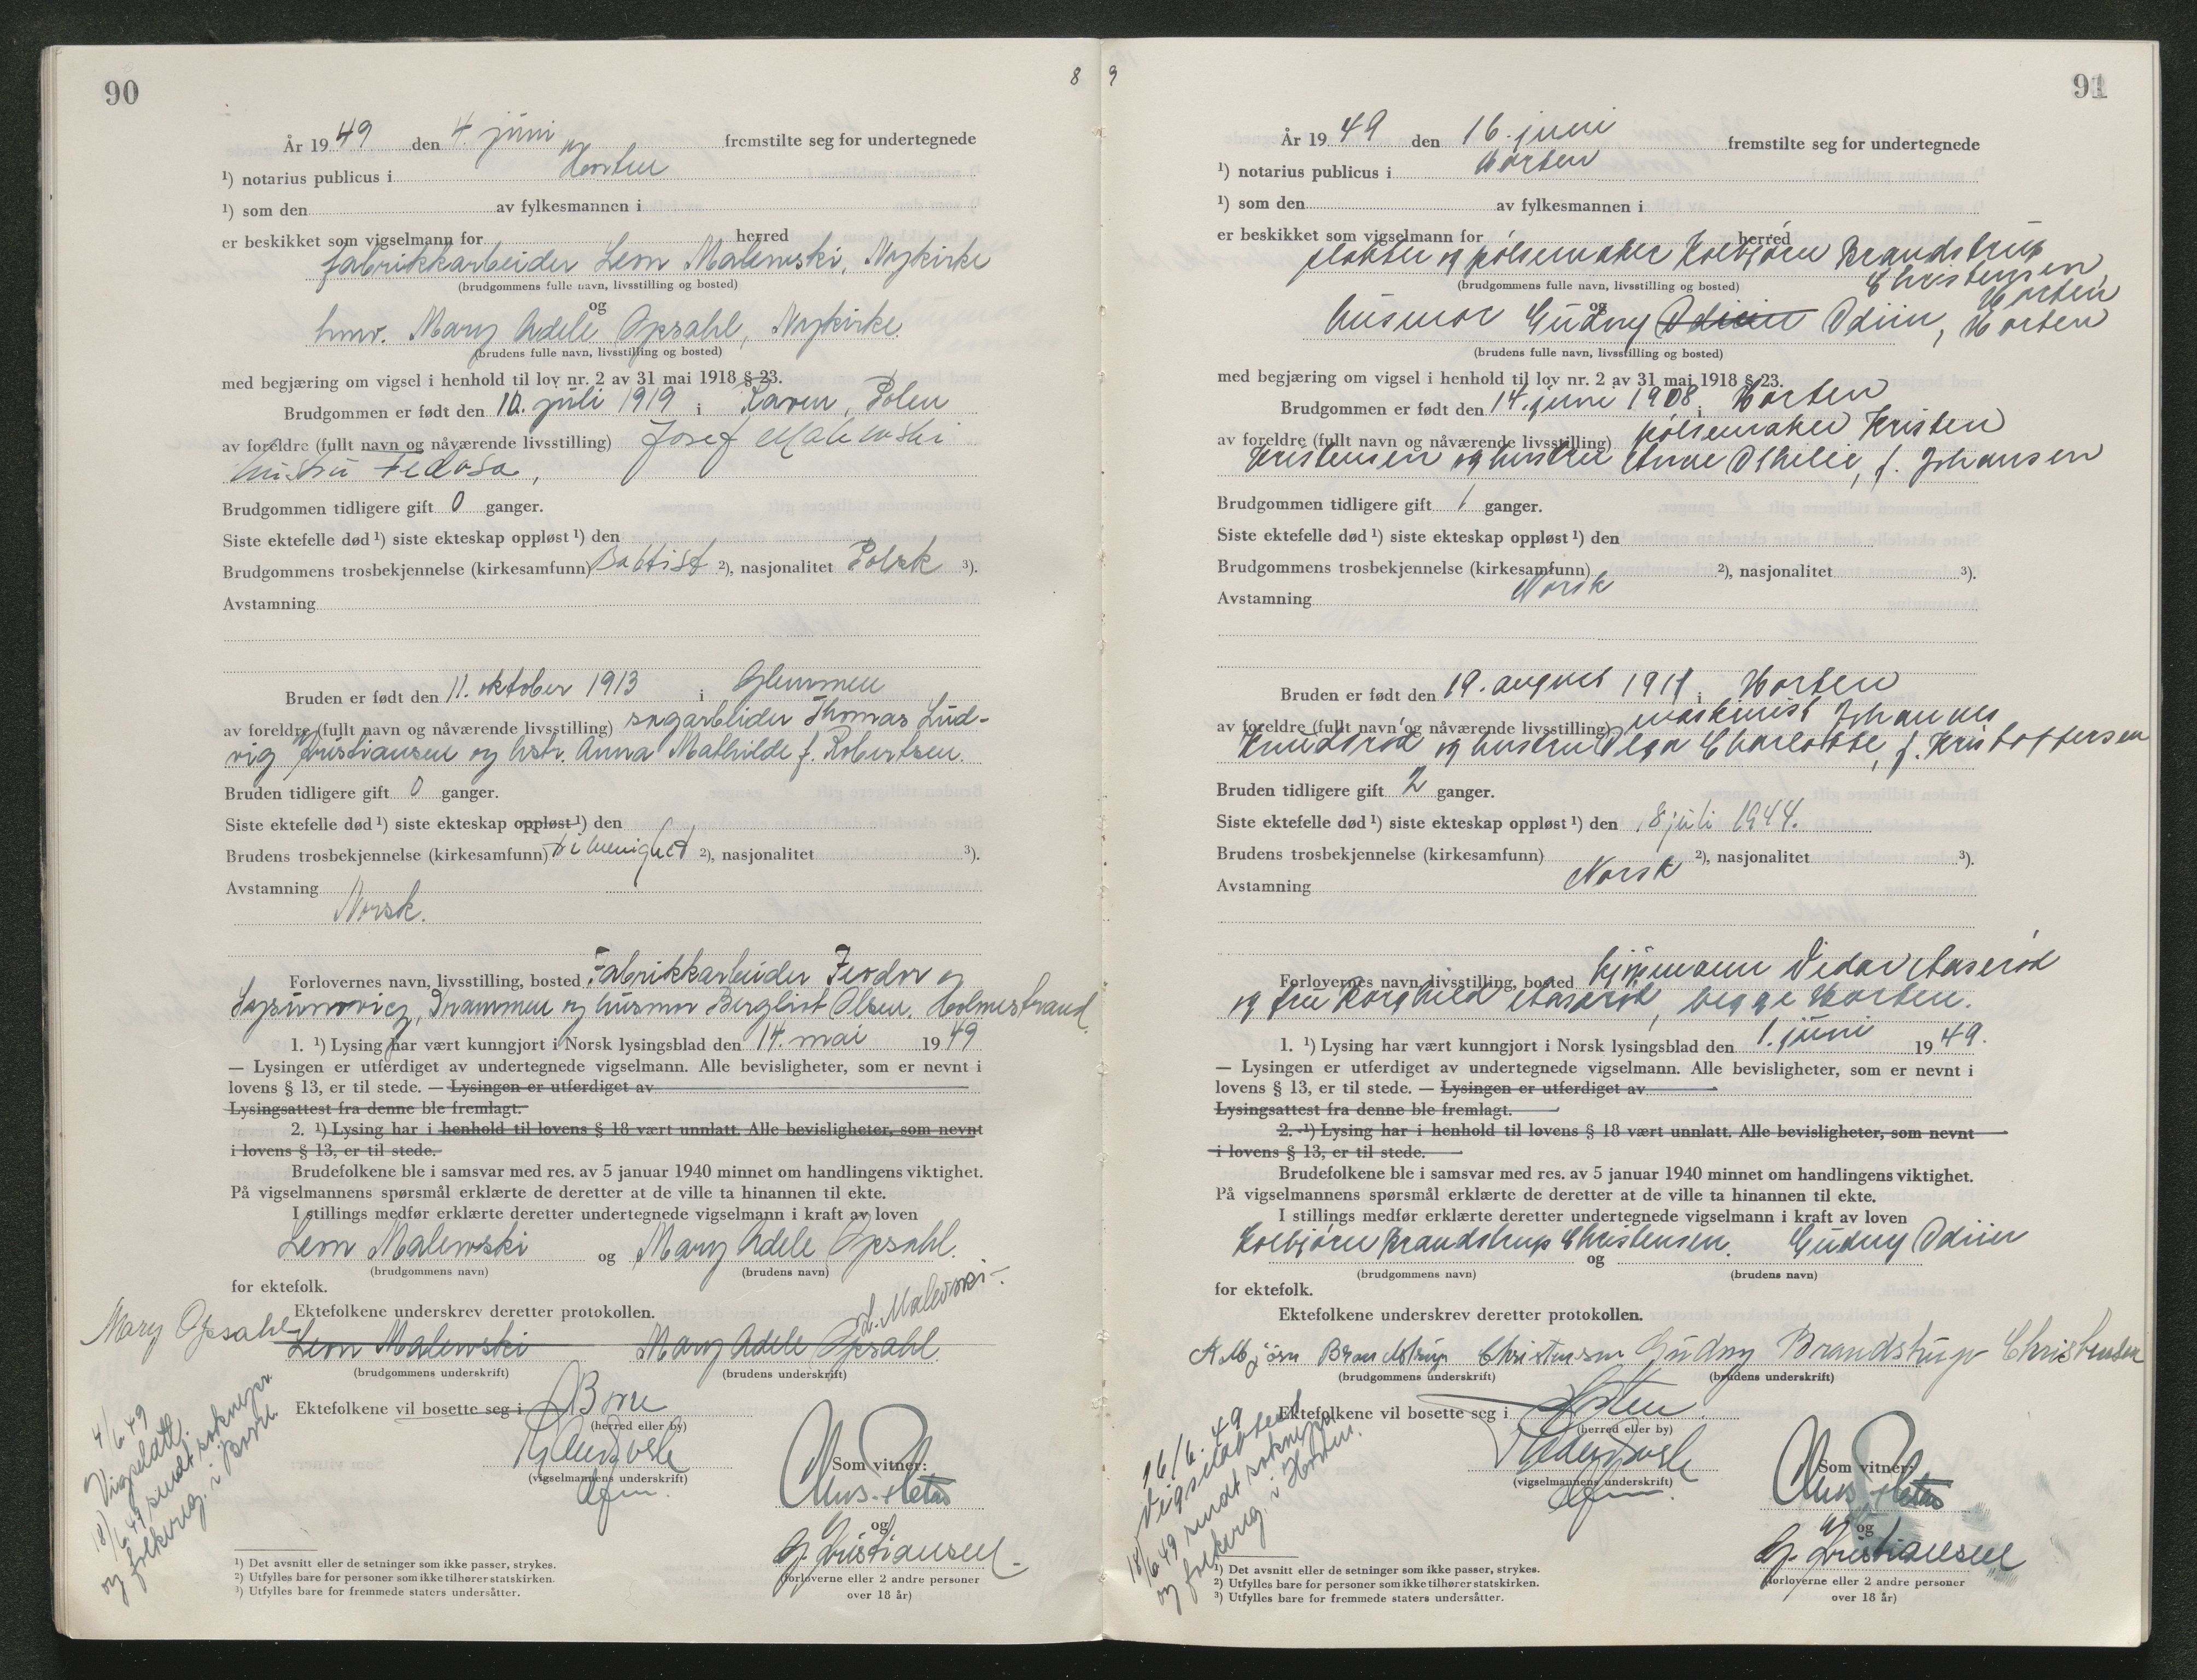 90
8
År 1949 den 4. juni fremstilte seg for undertegnede
¹) notarius publicus i Horten
¹) som den av fylkesmannen i
er beskikket som vigselmann for herred
fabrikkarbeider Leon Malewski, Nykirke
(brudgommens fulle navn, livsstilling og bosted)
og
hmv. Mary Adele Opsahl, Nykirke.
(brudens fulle navn, livsstilling og bosted)
med begjæring om vigsel i henhold til lov nr. 2 av 31 mai 1918 § 23.
Brudgommen er født den 10. juli 1919 i Raven, Polen
av foreldre (fullt navn og nåværende livsstilling) Josef Malewski
hustru Fedosa,
Brudgommen tidligere gift 0 ganger.
Siste ektefelle død ¹) siste ekteskap oppløst ¹) den
Brudgommens trosbekjennelse (kirkesamfunn) Babtist ²), nasjonalitet Polsk ³).
Avstamning
Bruden er født den 11. oktober 1913 i Glemmen
av foreldre (fullt navn og nåværende livsstilling) sagarbeider Thomas Lud-
vig Kristiansen og hstr. Anna Mathilde f. Robertsen.
Bruden tidligere gift 0 ganger.
Siste ektefelle død ¹) siste ekteskap oppløst ¹) den
Brudens trosbekjennelse (kirkesamfunn) Frimenighet ²), nasjonalitet ³).
Avstamning
Norsk.
Forlovernes navn, livsstilling, bosted Fabrikkarbeider Feodor
Drammen og husmor Bergliot Olsen, Holmestrand.
1. ¹) Lysing har vært kunngjort i Norsk lysingsblad den 14. mai 1949
— Lysingen er utferdiget av undertegnede vigselmann. Alle bevisligheter, som er nevnt i
lovens § 13, er til stede. — Lysingen er utferdiget av
Lysingsattest fra denne ble fremlagt.
2. ¹) Lysing har i henhold til lovens § 18 vært unnlatt. Alle bevisligheter, som nevnt
i lovens § 13, er til stede.
Brudefolkene ble i samsvar med res. av 5 januar 1940 minnet om handlingens viktighet.
På vigselmannens spørsmål erklærte de deretter at de ville ta hinannen til ekte.
I stillings medfør erklærte deretter undertegnede vigselmann i kraft av loven
Leon Malewski og Mary Adele Opsahl.
(brudgommens navn) (brudens navn)
for ektefolk.
Ektefolkene underskrev deretter protokollen.
L. Malewski
Mary Opsahl
Leon Malewski Mary Adele Opsahl
(brudgommens underskrift) (brudens underskrift)
Ektefolkene vil bosette seg i Borre
(herred eller by)
(vigselmannens underskrift)
Som vitner:
og
G. Kristiansen
(forloverne eller 2 andre personer
over 18 år)
4/6 49
Vigselatt.
18/6 49 sendt sognepr.
og folkereg. i Borre.
¹) Det avsnitt eller de setninger som ikke passer, strykes.
²) Utfylles bare for personer som ikke tilhører statskirken.
³) Utfylles bare for fremmede staters undersåtter.
91
9
År 1949 den 16. juni fremstilte seg for undertegnede
¹) notarius publicus i Horten
¹) som den av fylkesmannen i
er beskikket som vigselmann for herred
slakter og pølsemaker Kolbjørn Brandstrup
Christensen,
Horten
(brudgommens fulle navn, livsstilling og bosted)
og
husmor Gudny Odiin Odiin, Horten
(brudens fulle navn, livsstilling og bosted)
med begjæring om vigsel i henhold til lov nr. 2 av 31 mai 1918 § 23.
Brudgommen er født den 14. juni 1908 i Horten
av foreldre (fullt navn og nåværende livsstilling) pølsemaker Kristen
Kristensen og hustru Anne Othilie, f. Johansen
Brudgommen tidligere gift 1 ganger.
Siste ektefelle død ¹) siste ekteskap oppløst ¹) den
Brudgommens trosbekjennelse (kirkesamfunn) ²), nasjonalitet ³).
Avstamning Norsk
Bruden er født den 19. august 1911 i Horten
av foreldre (fullt navn og nåværende livsstilling) maskinist Johannes
Knudsrød og hustru Olga Charlotte, f. Kristoffersen
Bruden tidligere gift 2 ganger.
Siste ektefelle død ¹) siste ekteskap oppløst ¹) den 8 juli 1944.
Brudens trosbekjennelse (kirkesamfunn) ²), nasjonalitet ³).
Avstamning Norsk
Forlovernes navn, livsstilling, bosted kjøpmann Vidar Aaserød
og fru Borghild Aaserød, begge Horten.
1. ¹) Lysing har vært kunngjort i Norsk lysingsblad den 1. juni 1949.
— Lysingen er utferdiget av undertegnede vigselmann. Alle bevisligheter, som er nevnt i
lovens § 13, er til stede. — Lysingen er utferdiget av
Lysingsattest fra denne ble fremlagt.
2. ¹) Lysing har i henhold til lovens § 18 vært unnlatt. Alle bevisligheter, som nevnt
i lovens § 13, er til stede.
Brudefolkene ble i samsvar med res. av 5 januar 1940 minnet om handlingens viktighet.
På vigselmannens spørsmål erklærte de deretter at de ville ta hinannen til ekte.
I stillings medfør erklærte deretter undertegnede vigselmann i kraft av loven
Kolbjørn Brandstrup Christensen. og Gudny Odiin
(brudgommens navn) (brudens navn)
for ektefolk.
Ektefolkene underskrev deretter protokollen.
Kolbjørn Brandstrup Christensen Gudny Brandstrup Christensen
(brudgommens underskrift) (brudens underskrift)
Ektefolkene vil bosette seg i Horten.
(herred eller by)
(vigselmannens underskrift)
Som vitner:
og
G. Kristiansen
(forloverne eller 2 andre personer
over 18 år)
16/6. 49
Vigselattest
18/6 49 sendt sognepr.
og folkereg. i Horten.
¹) Det avsnitt eller de setninger som ikke passer, strykes.
²) Utfylles bare for personer som ikke tilhører statskirken.
³) Utfylles bare for fremmede staters undersåtter.